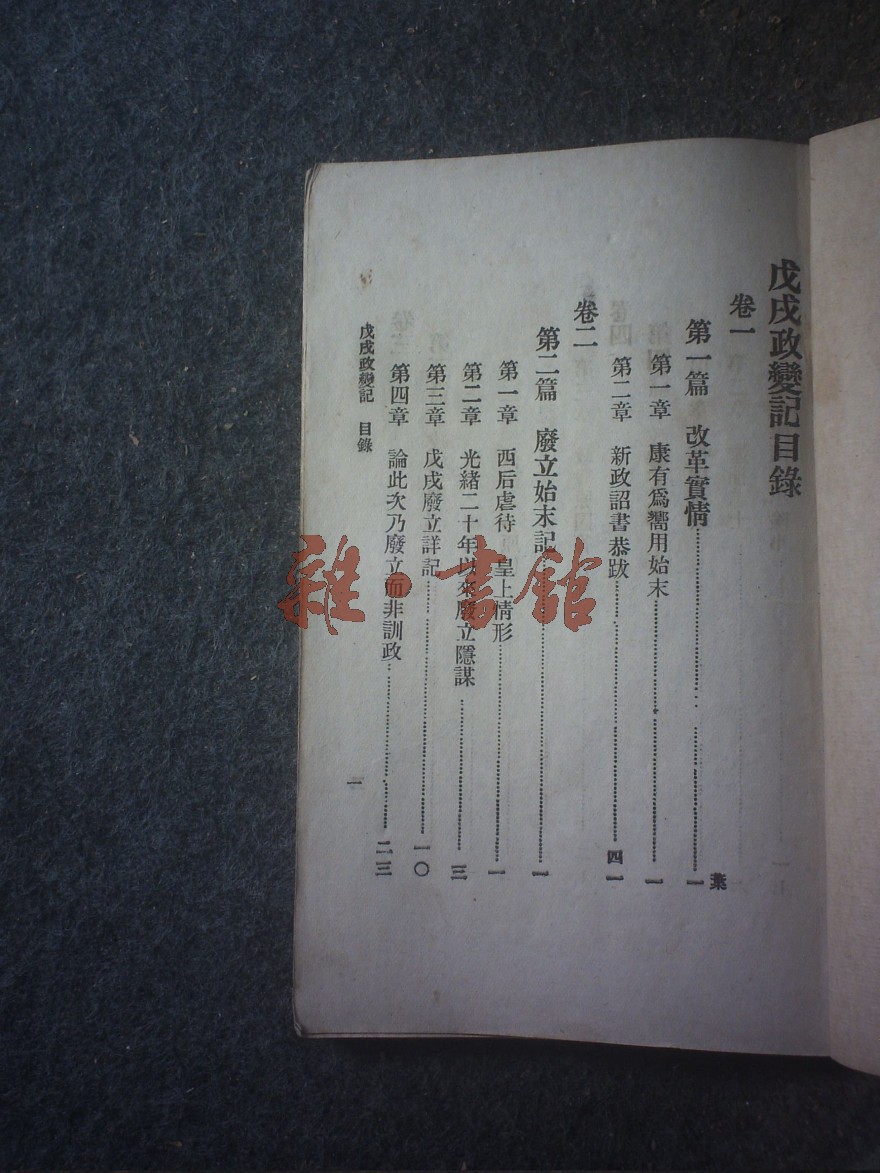 戊戌政變記目錄
卷一
葉
第一篇 改革實情 一
第一章 康有爲嚮用始末 一
第二章 新政詔書恭跋 四一
卷二
第二篇 廢立始末記 一
第一章 西后虐待 皇上情形 一
第二章 光緒二十年以來廢立隱謀 三
第三章 戊戌廢立詳記 一〇
第四章 論此次乃廢立而非訓政 二三
戊戌政變記 目錄 一
雜·書館